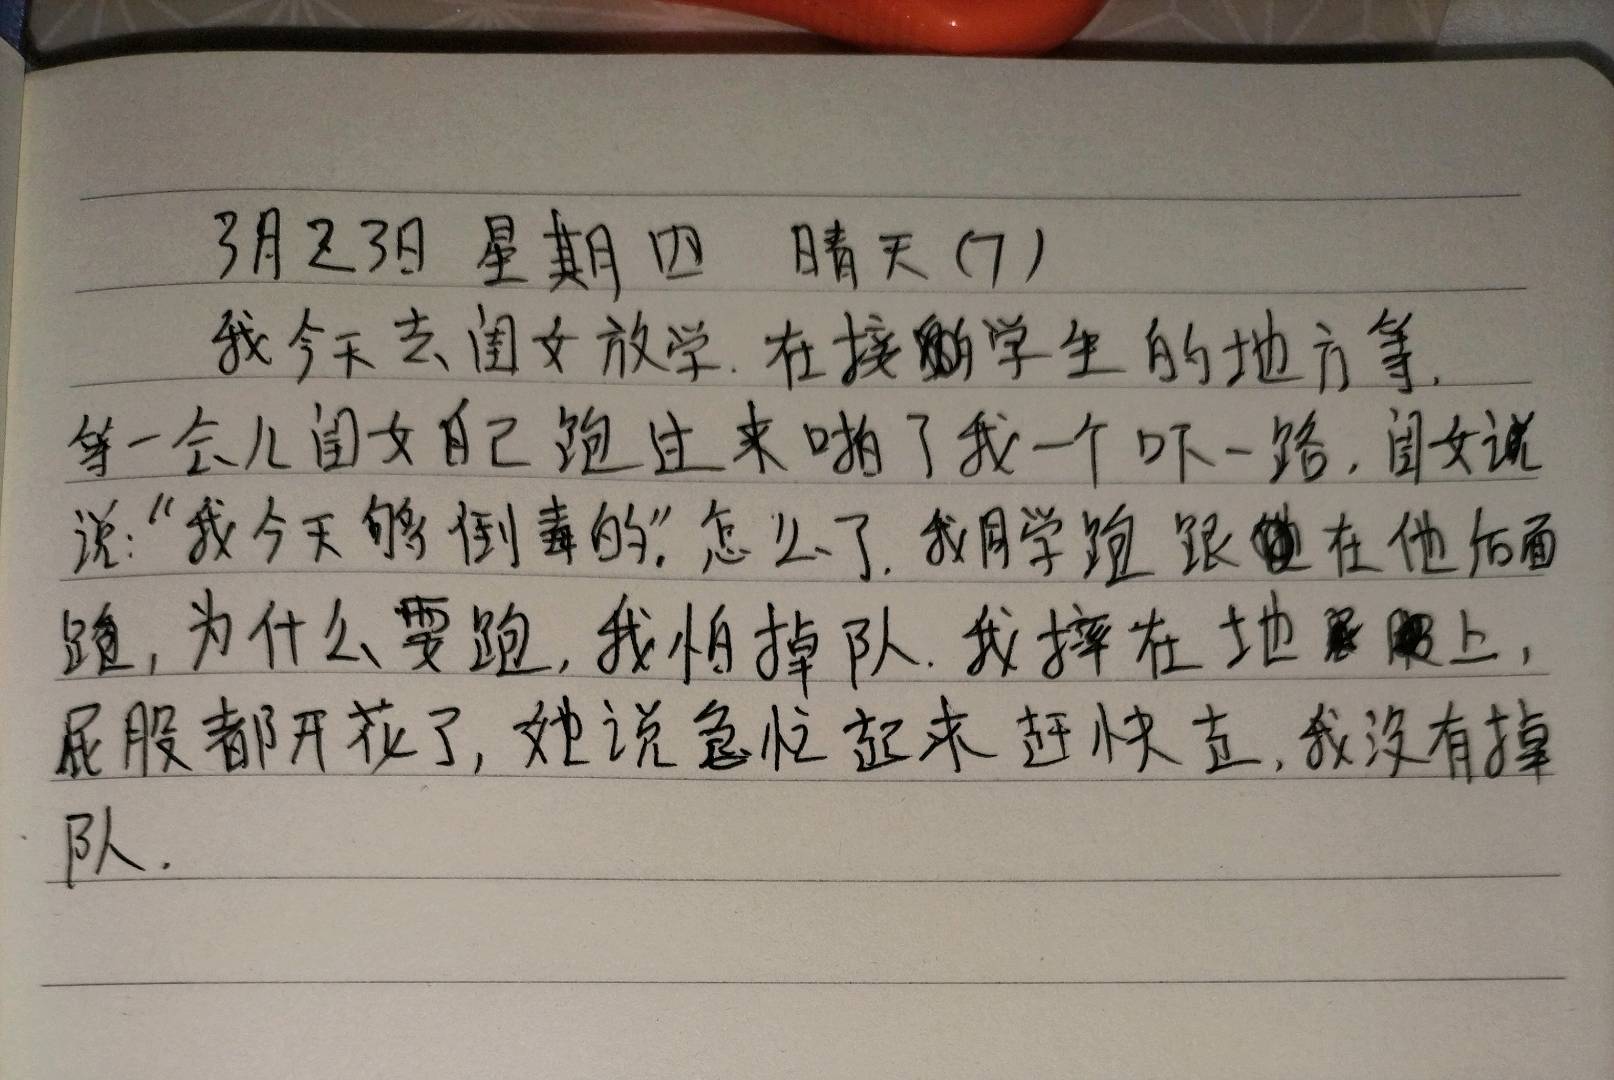 3月23日 星期四 晴天(7)
我今天去闺女放学.在接学生的地方等.
等一会儿闺女自己跑过来啪了我一个吓一路.闺女说
说:“我今天够倒毒的.”怎么了.我同学跑跟在他后面
跑,为什么要跑,我怕掉队.我摔在地上,
屁股都开花了,她说急忙起来赶快走,我没有掉
队.